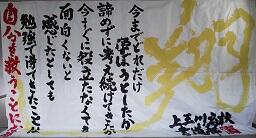 翔
今までどれだけ
学ぼうとしたか
諦めずに考え続けてきたか
今すぐに役立たなくても
面白くないと
感じたとしても
勉強で得てきたことが
自分を救うことに
上三川高校
書道部